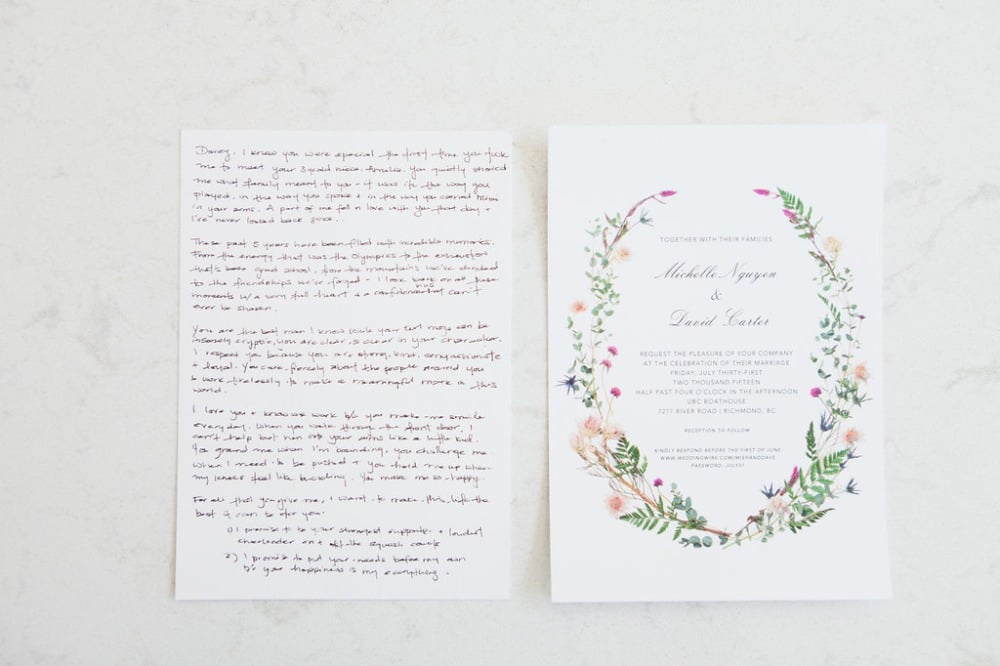 Davey, I knew you were special the first time you took
me to meet your 3 year old niece, Amelia. You quietly showed
me what family meant to you - it was in the way you
played, in the way you spoke + in the way you carried
in your arms. A part of me fell in love with you that day +
I've never looked back since.
These past 5 years have been filled with incredible memories.
From the energy that was the Olympics to the exhaustion
that's been grad school, from the mountains we've climbed
to the friendships we've forged - I look back on all these
moments w/ a very full heart + a confidence that can't
ever be shaken.
You are the best man I know. While your text msgs can be
insanely cryptic, you are clear in your character.
I respect you because you are strong, kind, compassionate
+ loyal. You care fiercely about the people around you
+ work tirelessly to make a meaningful mark in this
world.
I love you + know we work b/c you make me smile
everyday. When you walk through the front door, I
can't help but run into your arms like a little kid.
You ground me when I'm bounding, you challenge me
when I need to be pushed + you hold me up when
my knees feel like buckling. You make me so happy.
For all that you give me, I want to make this life the
best it can be for you.
1) I promise to be your strongest supporter + loudest
cheerleader on + off the squash courts
2) I promise to put your needs before my own
b/c your happiness is my everything.
TOGETHER WITH THEIR FAMILIES
Michelle Nguyen
&
David Carter
REQUEST THE PLEASURE OF YOUR COMPANY
AT THE CELEBRATION OF THEIR MARRIAGE
FRIDAY, JULY THIRTY-FIRST
TWO THOUSAND FIFTEEN
HALF PAST FOUR O'CLOCK IN THE AFTERNOON
UBC BOATHOUSE
7277 RIVER ROAD | RICHMOND, BC
RECEPTION TO FOLLOW
KINDLY RESPOND BEFORE THE FIRST OF JUNE
WWW.WEDDINGWIRE.COM/MISHANDDAVE
PASSWORD: JULY31